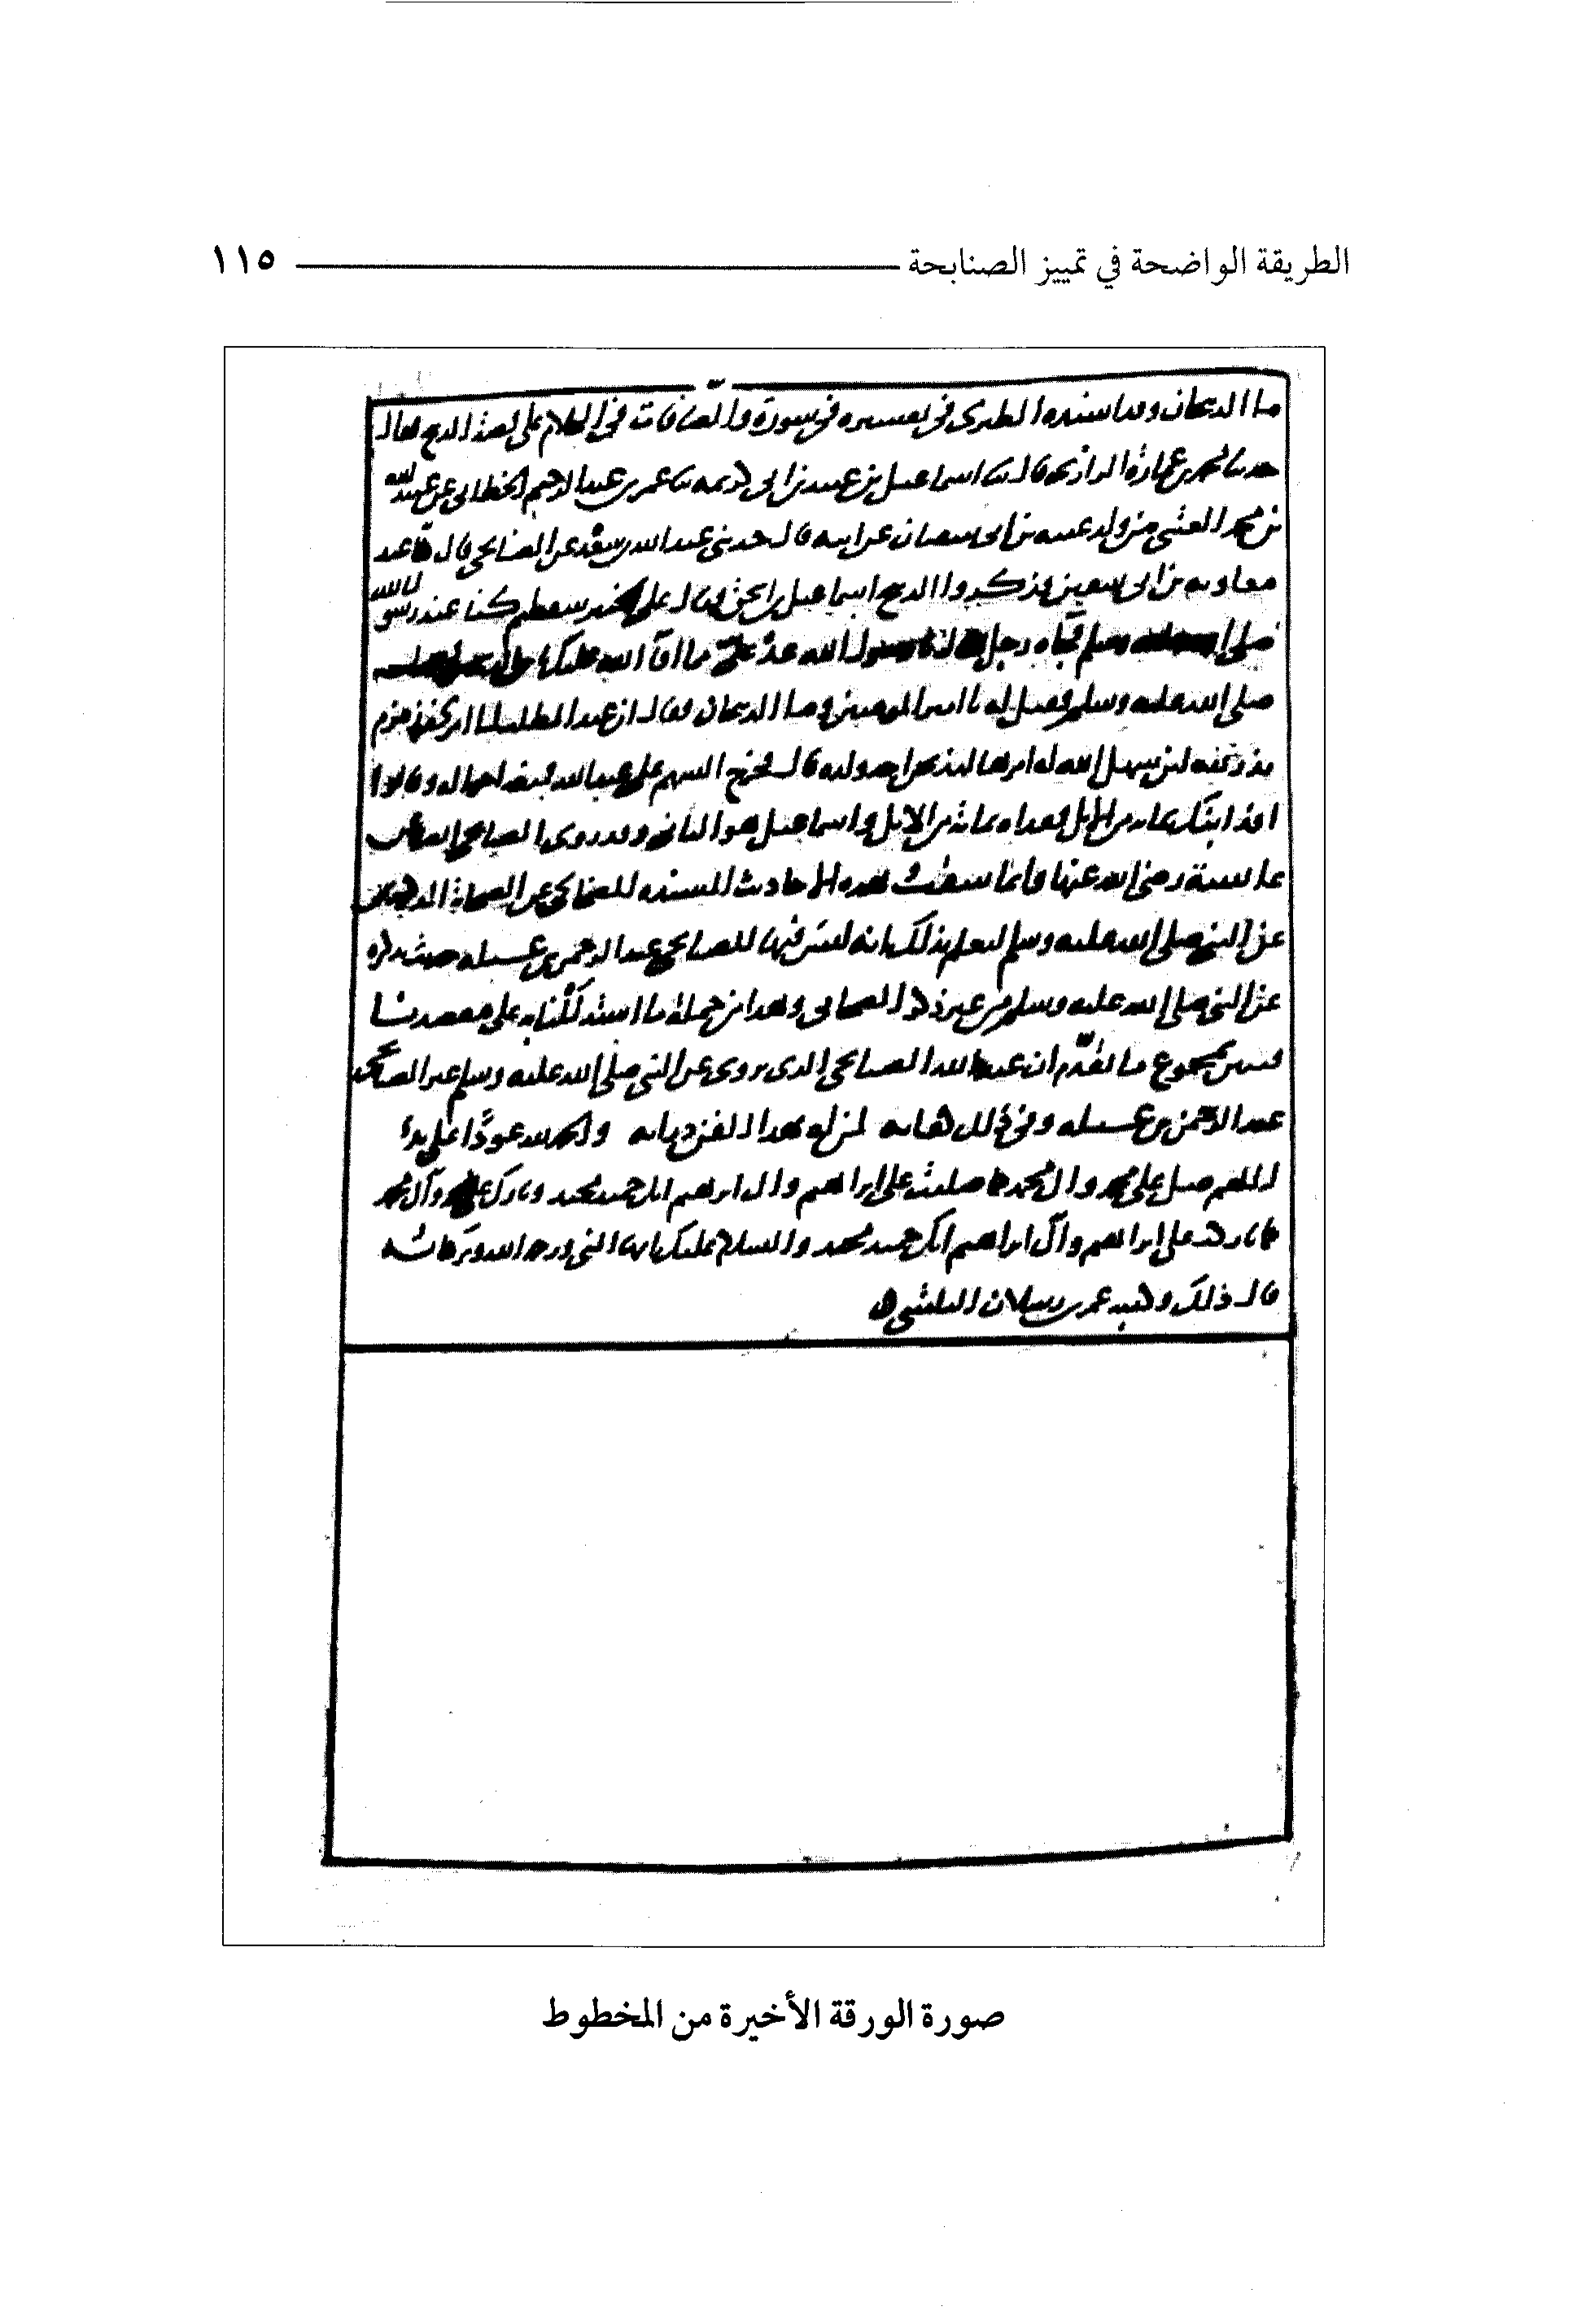 الطريقة الواضحة في تمييز الصنابحة ١١٥
ما الذبيحان وقد اسنده الطبري في تفسيره في سورة والصافات في الكلام على قصة الذبح فقال
حدثنا محمد بن عمار الرازي قال ثنا اسماعيل بن عبيد بن ابي كريمة ثنا عمر بن عبد الرحيم الخطابي عن عبيد الله
بن محمد العتبي من ولد عتبة بن ابي سفيان عن ابيه قال حدثني عبد الله بن سعيد عن الصنابحي قال كنا عند
معاوية بن ابي سفين فذكروا الذبيح اسماعيل او اسحق فقال على الخبير سقطتم كنا عند رسول الله
صلى الله عليه وسلم فجاه رجل فقال يا رسول الله عد علي مما افآ الله عليك يا بن الذبيحين فضحك
صلى الله عليه وسلم فقيل له يا امير المومنين وما الذبيحان فقال ان عبد المطلب لما امر بحفر زمزم
نذر لله لئن سهل الله له امرها ليذبحن احد ولده قال فخرج السهم على عبد الله فمنعه اخواله وقالوا
افد ابنك بمائة من الابل ففداه بمائة من الابل واسماعيل هو الثاني وقد روى الصنابحي ايضا عن
عائشة رضي الله عنها وانما سقت هذه الاحاديث المسندة للصنابحي عن الصحابة الذين
عن النبي صلى الله عليه وسلم ليعلم بذلك انه ليس فيها للصنابحي عبد الرحمن بن عسيلة حديث ذكره
عن النبي صلى الله عليه وسلم من غير ذكر الصحابي وهذا من جملة ما استدللنا به على مقصدنا
فتبين بمجموع ما تقدم ان عبد الله الصنابحي الذي يروي عن النبي صلى الله عليه وسلم غير الصنابحي
عبد الرحمن بن عسيلة وفي ذلك كفاية لمن له بهذا الفن دراية والحمد لله عودًا على بدء
اللهم صل على محمد وال محمد كما صليت على ابراهيم وال ابراهيم انك حميد مجيد وبارك على محمد وآل محمد
كما باركت على ابراهيم وآل ابراهيم انك حميد مجيد والسلام عليك ايها النبي ورحمة الله وبركاته
قال ذلك وكتبه عمر بن رسلان البلقيني
صورة الورقة الأخيرة من المخطوط